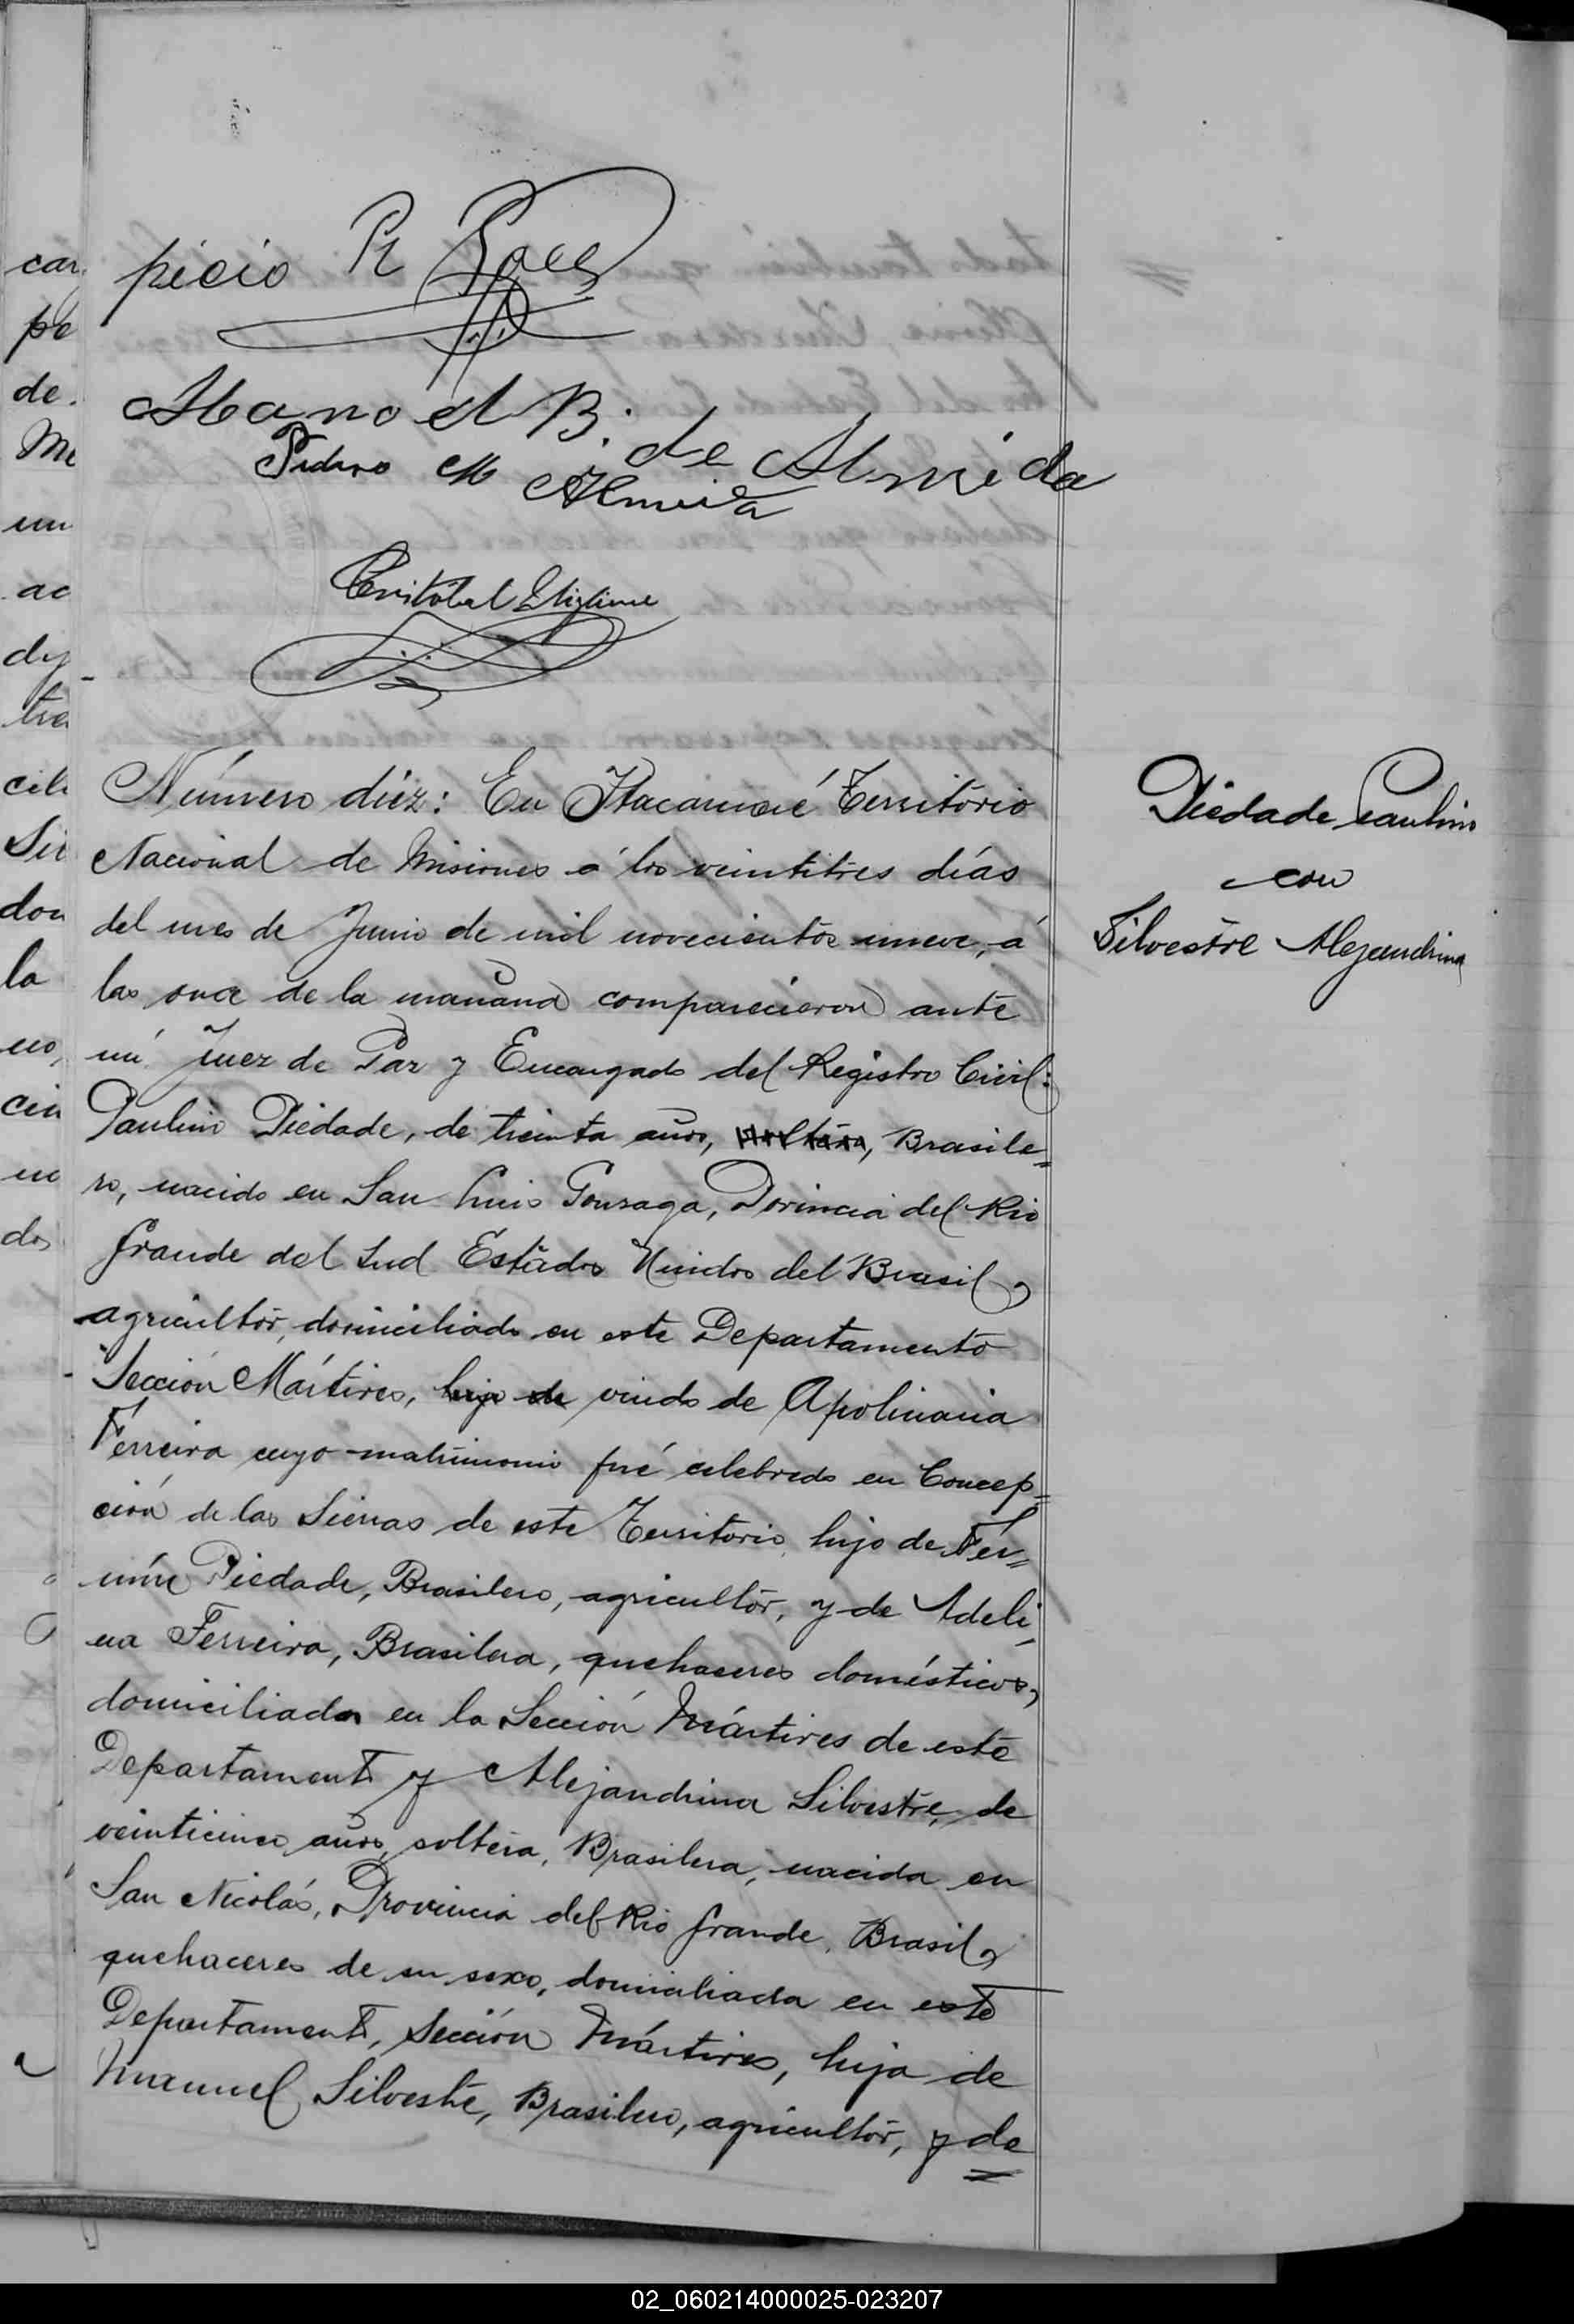 picio R
Manoel B. de Almeida
Pedro M Almeida
Cristobal
Número diez: En Itacaruaré Territorio
Nacional de Misiones á los veintitres días
del mes de Junio de mil novecientos nueve, á
las once de la mañana comparecieron ante
mí Juez de Paz y Encargado del Registro Civil:
Paulino Piedade, de treinta años, soltero, Brasile=
ro, nacido en San Luis Gonzaga, Provincia del Rio
Grande del Sud Estados Unidos del Brasil,
agricultor, domiciliado en este Departamento
Sección Mártires, hijo de viudo de Apolinaria
Ferreira cuyo matrimonio fué celebrado en Concep=
ción de las Sierras de este Territorio, hijo de Fer=
mín Piedade, Brasilero, agricultor, y de Adeli
na Ferreira, Brasilera, quehaceres domésticos,
domiciliados en la Sección Mártires de este
Departamento y Alejandrina Silvestre, de
veinticinco años, soltera, Brasilera, nacida en
San Nicolás, Provincia del Rio Grande, Brasil,
quehaceres de su sexo, domiciliada en este
Departamento, Sección Mártires, hija de
Manuel Silvestre, Brasilero, agricultor, y de
Piedade Paulino
con
Silvestre Alejandrina
car
pe
de
un
ac
la
do
02_060214000025-023207